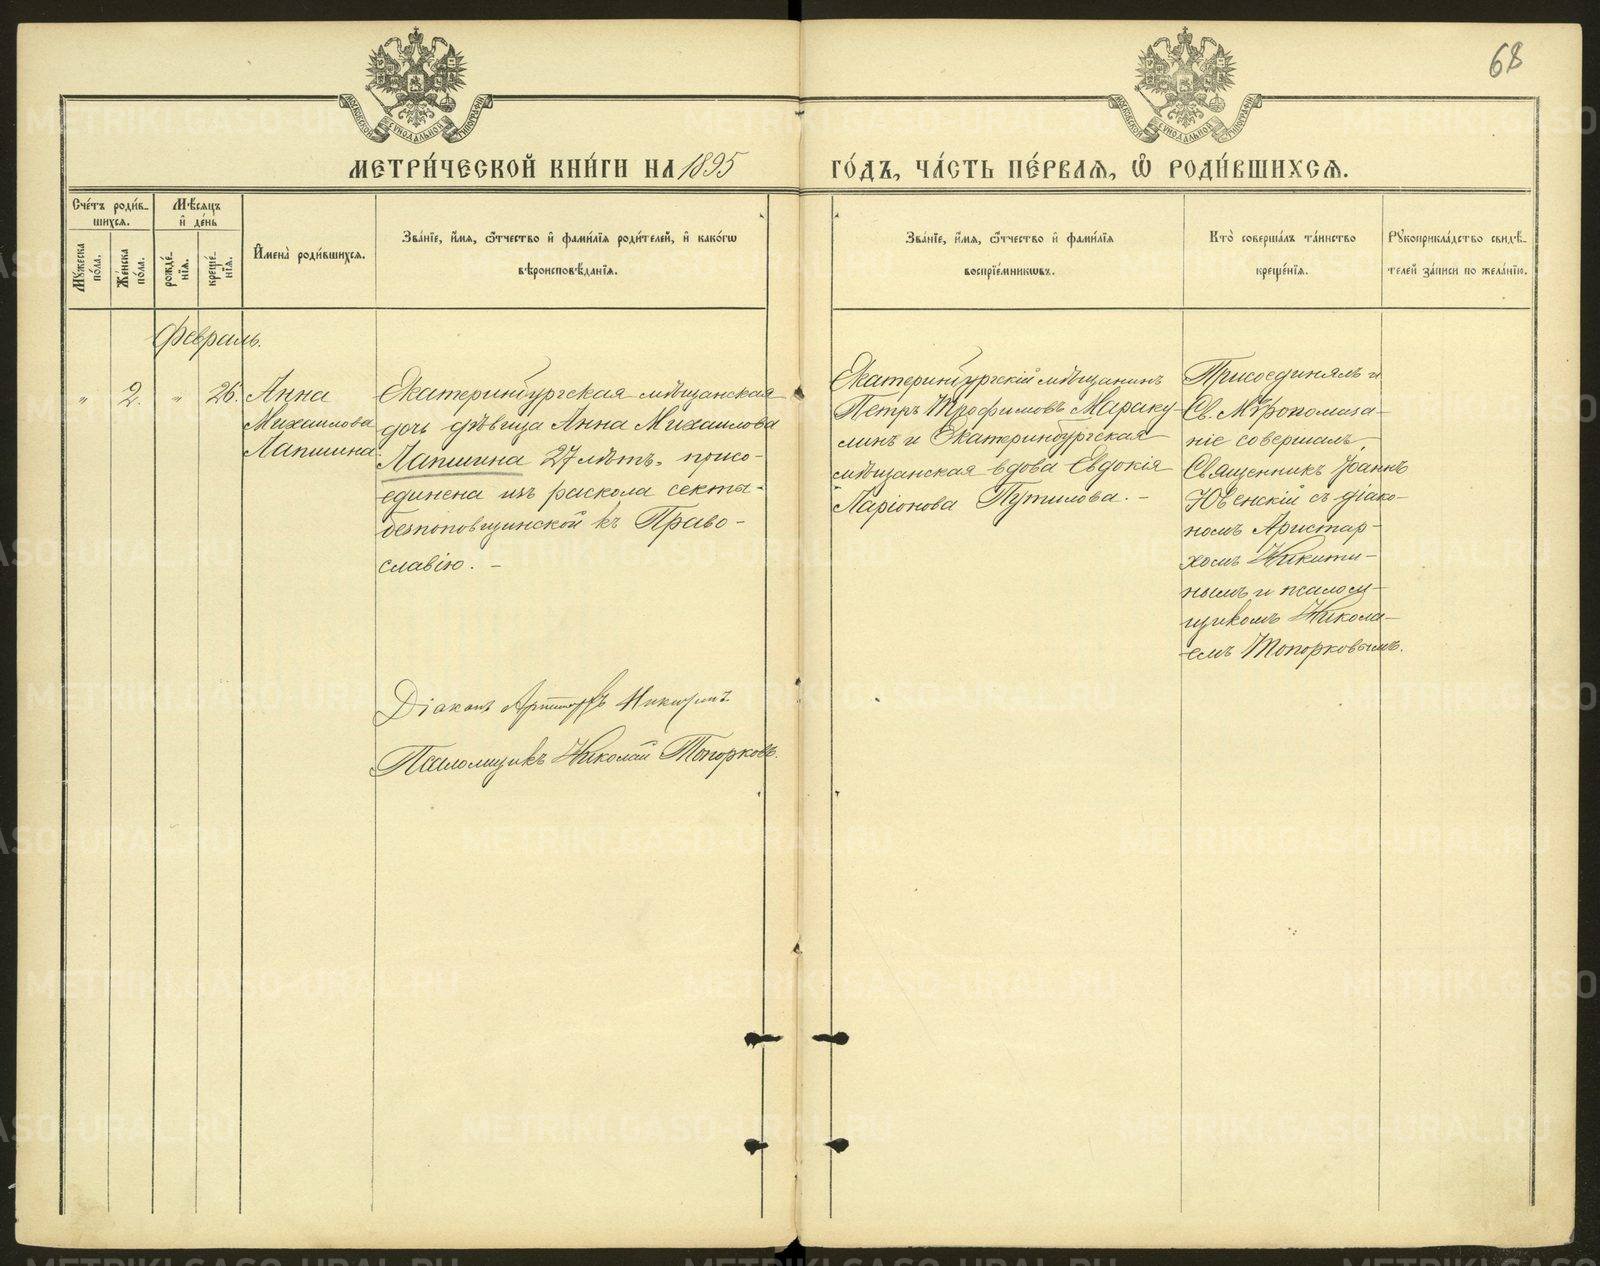 68
МОСКОВСКОЙ СѴНОДАЛЬНОЙ ТИПОГРАФІИ
МОСКОВСКОЙ СѴНОДАЛЬНОЙ ТИПОГРАФІИ
МЕТРИ́ЧЕСКОЙ КНИ́ГИ НА 1895
ГО́ДЪ, ЧА́СТЬ ПЕ́РВАѦ, Ѡ҆ РОДИ́ВШИХСѦ.
Сче́тъ роди́в-
шихся.
Мꙋжеска по́ла.
Же́нска по́ла.
Мѣ́сяцъ
и҆ де́нь
рожде́-
нїя.
креще́-
нїя.
И҆мена̀ роди́вшихся.
Зва́нїе, и҆́мя, ѻ҆́тчество и҆ фами́лїя роди́телей, и҆ како́гѡ
вѣроисповѣ́данїя.
Зва́нїе, и҆́мя, ѻ҆́тчество и҆ фами́лїя
воспрїе́мникѡвъ.
Кто̀ соверша́лъ та́инство
креще́нїя.
Рꙋкоприкла́дство свидѣ́-
телей за́писи по жела́нїю.
Февраль.
" 2. " 26.
Анна
Михаилова
Лапшина.
Екатеринбургская мѣщанская
дочь дѣвица Анна Михаилова
Лапшина 27 лѣтъ, присо-
единена изъ раскола секты
безпоповщинской къ Право-
славію. -
Діаконъ Аристархъ Никитинъ
Псаломщикъ Николай Топорковъ.
Екатеринбургскій мѣщанинъ
Петръ Трофимовъ Мараку-
линъ и Екатеринбургская
мѣщанская вдова Евдокія
Ларіонова Путилова. -
Присоединялъ и
Св. Мѵропомаза-
ніе совершалъ
Священникъ Іоаннъ
Ювенскій съ діако-
номъ Аристар-
хомъ Никити-
нымъ и псалом-
щикомъ Никола-
емъ Топорковымъ.
METRIKI.GASO-URAL.RU